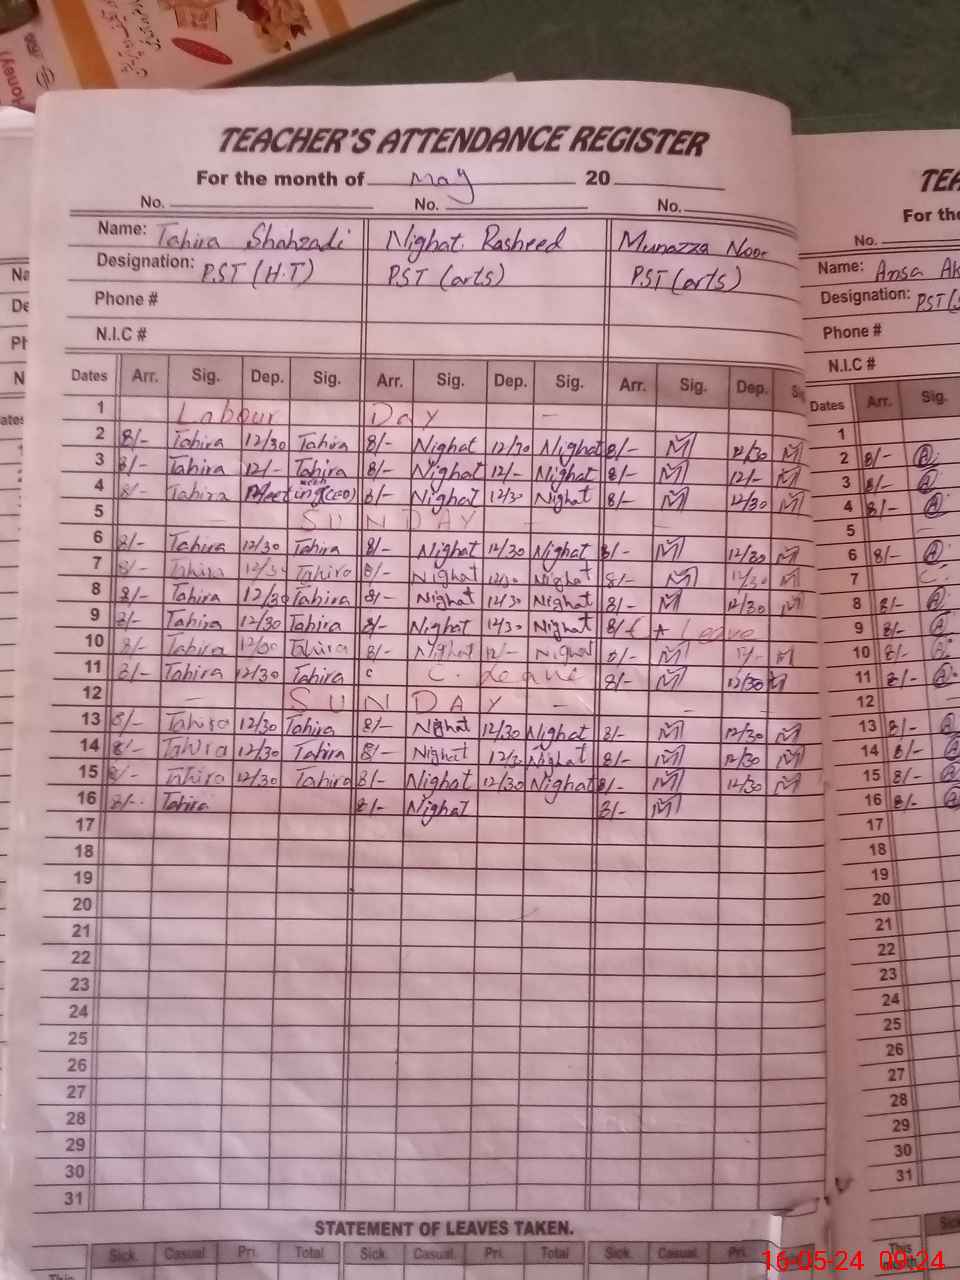 Honey)
TEACHER'S ATTENDANCE REGISTER
For the month of May 20
No. No. No.
Name: Tahira Shahzadi Nighat Rasheed Munazza Noor
Designation: P.ST (H.T) P.ST (arts) P.ST (arts)
Phone #
N.I.C #
Dates Arr. Sig. Dep. Sig. Arr. Sig. Dep. Sig. Arr. Sig. Dep. Sig
1 Labour Day -
2 8/- Tahira 12/30 Tahira 8/- Nighat 12/30 Nighat 8/- M 12/30 M
3 8/- Tahira 12/- Tahira 8/- Nighat 12/- Nighat 8/- M 12/- M
4 8/- Tahira Meeting with (CEO) 8/- Nighat 12/30 Nighat 8/- M 12/30 M
5 - SUNDAY - -
6 8/- Tahira 12/30 Tahira 8/- Nighat 12/30 Nighat 8/- M 12/30 M
7 8/- Tahira 12/30 Tahira 8/- Nighat 12/30 Nighat 8/- M 12/30 M
8 8/- Tahira 12/30 Tahira 8/- Nighat 12/30 Nighat 8/- M 12/30 M
9 8/- Tahira 12/30 Tahira 8/- Nighat 12/30 Nighat 8/ Leave
10 8/- Tahira 12/30 Tahira 8/- Nighat 12/- Nighat 8/- M 12/- M
11 8/- Tahira 12/30 Tahira C C. Leave 8/- M 12/30 M
12 - SUNDAY - - -
13 8/- Tahira 12/30 Tahira 8/- Nighat 12/30 Nighat 8/- M 12/30 M
14 8/- Tahira 12/30 Tahira 8/- Nighat 12/30 Nighat 8/- M 12/30 M
15 8/- Tahira 12/30 Tahira 8/- Nighat 12/30 Nighat 8/- M 12/30 M
16 8/- Tahira 8/- Nighat 8/- M
17
18
19
20
21
22
23
24
25
26
27
28
29
30
31
STATEMENT OF LEAVES TAKEN.
Sick. Casual Pri. Total Sick. Casual Pri. Total Sick. Casual Pri.
This
TEA
For the
No.
Name: Ansa Ak
Designation: P.ST (S
Phone #
N.I.C #
Dates Arr. Sig.
1
2 8/- A
3 8/- A
4 8/- A
5 -
6 8/- A
7 C.
8 8/- A
9 8/- A
10 8/- A
11 8/- A
12 -
13 8/- A
14 8/- A
15 8/- A
16 8/- A
17
18
19
20
21
22
23
24
25
26
27
28
29
30
31
Sick
This
16-05-24 09:24